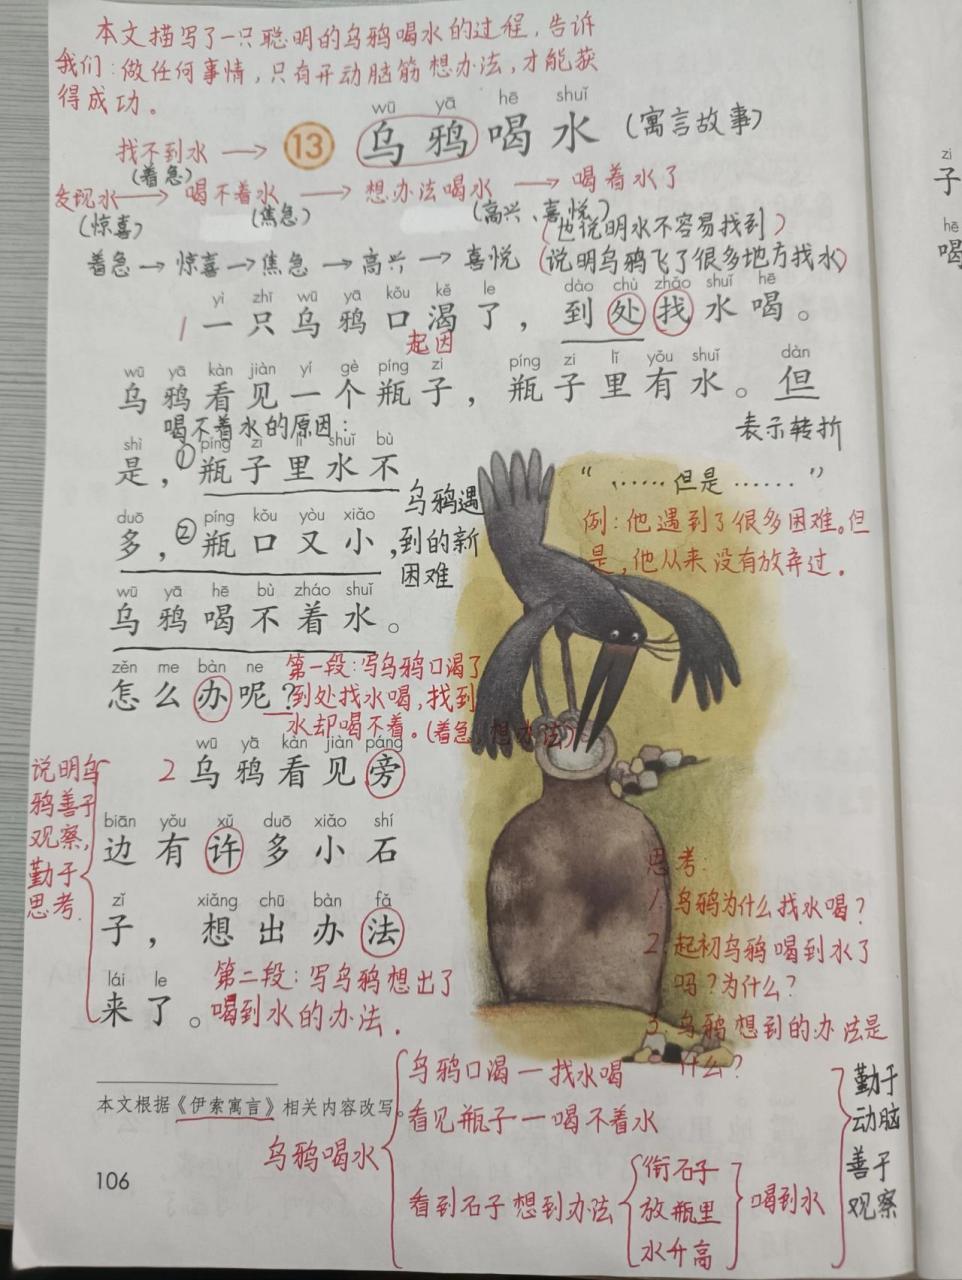 本文描写了一只聪明的乌鸦喝水的过程,告诉
我们:做任何事情,只有开动脑筋想办法,才能获
得成功。
wū yā hē shuǐ
13 乌鸦喝水 (寓言故事)
找不到水 →
(着急)
发现水 → 喝不着水 → 想办法喝水 → 喝着水了
(惊喜) (焦急) (高兴、喜悦)
(也说明水不容易找到)
着急→惊喜→焦急→高兴→喜悦 (说明乌鸦飞了很多地方找水)
yì zhī wū yā kǒu kě le dào chù zhǎo shuǐ hē
1 一只乌鸦口渴了,到处找水喝。
起因
wū yā kàn jiàn yí gè píng zi píng zi lǐ yǒu shuǐ dàn
乌鸦看见一个瓶子,瓶子里有水。但
喝不着水的原因:
表示转折
shì píng zi lǐ shuǐ bù
是,①瓶子里水不
“……但是……”
乌鸦遇
到的新
困难
例:他遇到了很多困难。但
是,他从来没有放弃过.
duō píng kǒu yòu xiǎo
多,②瓶口又小,
wū yā hē bù zháo shuǐ
乌鸦喝不着水。
zěn me bàn ne
怎么办呢?
第一段:写乌鸦口渴了
到处找水喝,找到
水却喝不着。(着急,想办法)
wū yā kàn jiàn páng
2 乌鸦看见旁
biān yǒu xǔ duō xiǎo shí
边有许多小石
zǐ xiǎng chū bàn fǎ
子,想出办法
lái le
来了。
说明乌
鸦善于
观察,
勤于
思考.
第二段:写乌鸦想出了
喝到水的办法.
思考:
1.乌鸦为什么找水喝?
2.起初乌鸦喝到水了
吗?为什么?
3.乌鸦想到的办法是
什么?
本文根据《伊索寓言》相关内容改写。
乌鸦喝水
乌鸦口渴—找水喝
看见瓶子—喝不着水
看到石子 想到办法
衔石子
放瓶里
水升高
喝到水
勤于
动脑
善于
观察
106
zi
子
hē
喝